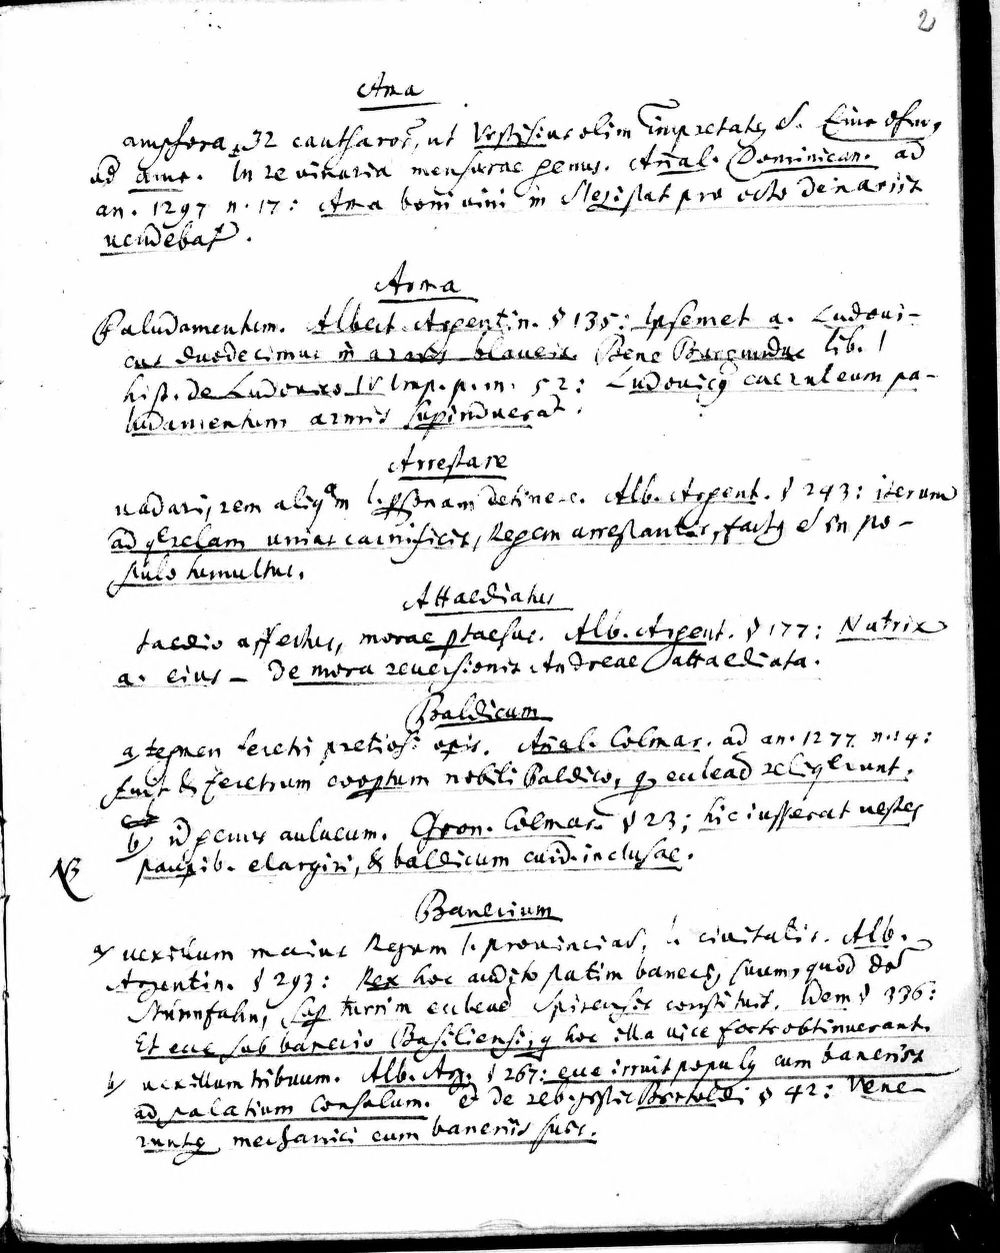 2
Ama
amphora, 32 cantharos, ut olim
ad ame. In re vinaria mensurae genus. Añal. Dominican. ad
an. 1297 n. 17: Ama boni vini in Slezistat pro octo denariis
vendebat.
Arma
Paludamentum. Albert Argentin. § 135: Ipsemet a. Ludovi-
cus duodecimus in armis blaueis. Bene Burgundus lib. 1
hist. de Ludovico IV Imp. p. m. 52: Ludovicus caeruleum pa-
ludamentum armis superinduerat.
Arrestare
vadari, rem aliquam l. personam detinere. Alb. Argent. § 243: iterum
ad querelam unius carnificis, Regem arrestantes, factus est in po-
pulo tumultus.
Attaediatus
taedio affectus, morae pertaesus. Alb. Argent. § 177: Nutrix
a. eius – de mora reversionis Andreae attaediata.
Baldicum
a, tegmen feretri pretiosi operis. Añal. Colmar. ad an. 1277 n. 14:
feretrum coopertum nobili Baldico,
b, id genus aulaeum. Chron. Colmar. § 23; hic iusserat vestes
NB pauperib. elargiri, & baldicum inclusae.
Banerium
a, vexillum maius Regum l. provinciae, l. civitatis. Alb.
Argentin. § 293: Rex hoc audito statim banerium suum, quod dicitur
Sturmfahn, super turrim eccles. Spirensis constituit. Idem § 336:
Et ecce sub banerio Basiliensi, q hoc illa vice forte obtinuerant.
b, vexillum tribuum. Alb. Arg. § 267: ecce irruit populus cum baneriis
ad palatium Consulum. & de reb. gestis Bertoldi § 42: Vene-
runtque mechanici cum baneriis suis.